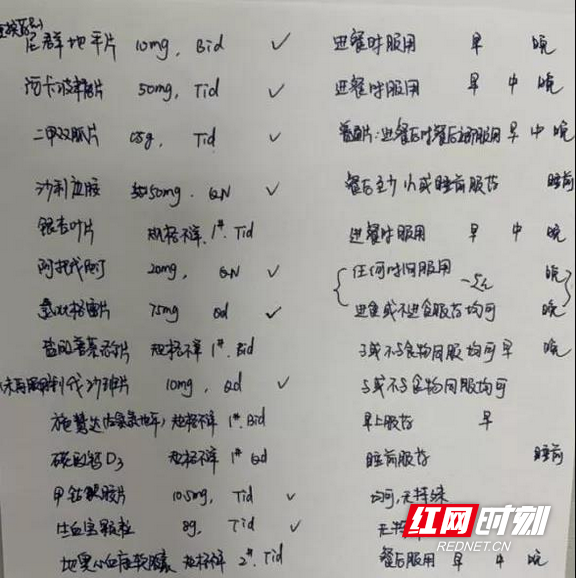 尼群地平片 10mg, Bid ✓ 进餐时服用 早 晚
阿卡波糖片 50mg, Tid ✓ 进餐时服用 早 中 晚
二甲双胍片 0.5g, Tid ✓ 普通片:进餐后时餐后立即服用 早 中 晚
沙利度胺 50mg, QN ✓ 餐后至少1h或睡前服药 睡前
银杏叶片 规格不详, 1#, Tid 进餐时服用 早 中 晚
阿托伐他汀 20mg, QN ✓ 任何时间服用 一起 晚
氢吡格雷片 75mg Qd ✓ 进食或不进食服药均可 晚
盐酸普罗帕酮片 规格不详 1#, Bid 与或不与食物同服均可 早 晚
代沙班片 10mg, Qd ✓ 与或不与食物同服均可
施慧达(左氨氯地平) 规格不详 1#, Bid 早上服药 早
碳酸钙D3 规格不详 1# Qd 睡前服药 睡前
甲钴胺胶片 0.5mg, Tid ✓ 均可,无特殊
生血宝颗粒 8g, Tid ✓ 无特
地奥心血康软胶囊 规格不详 2#, Tid 餐后服用 早 中 晚
红网时刻
REDNET.CN